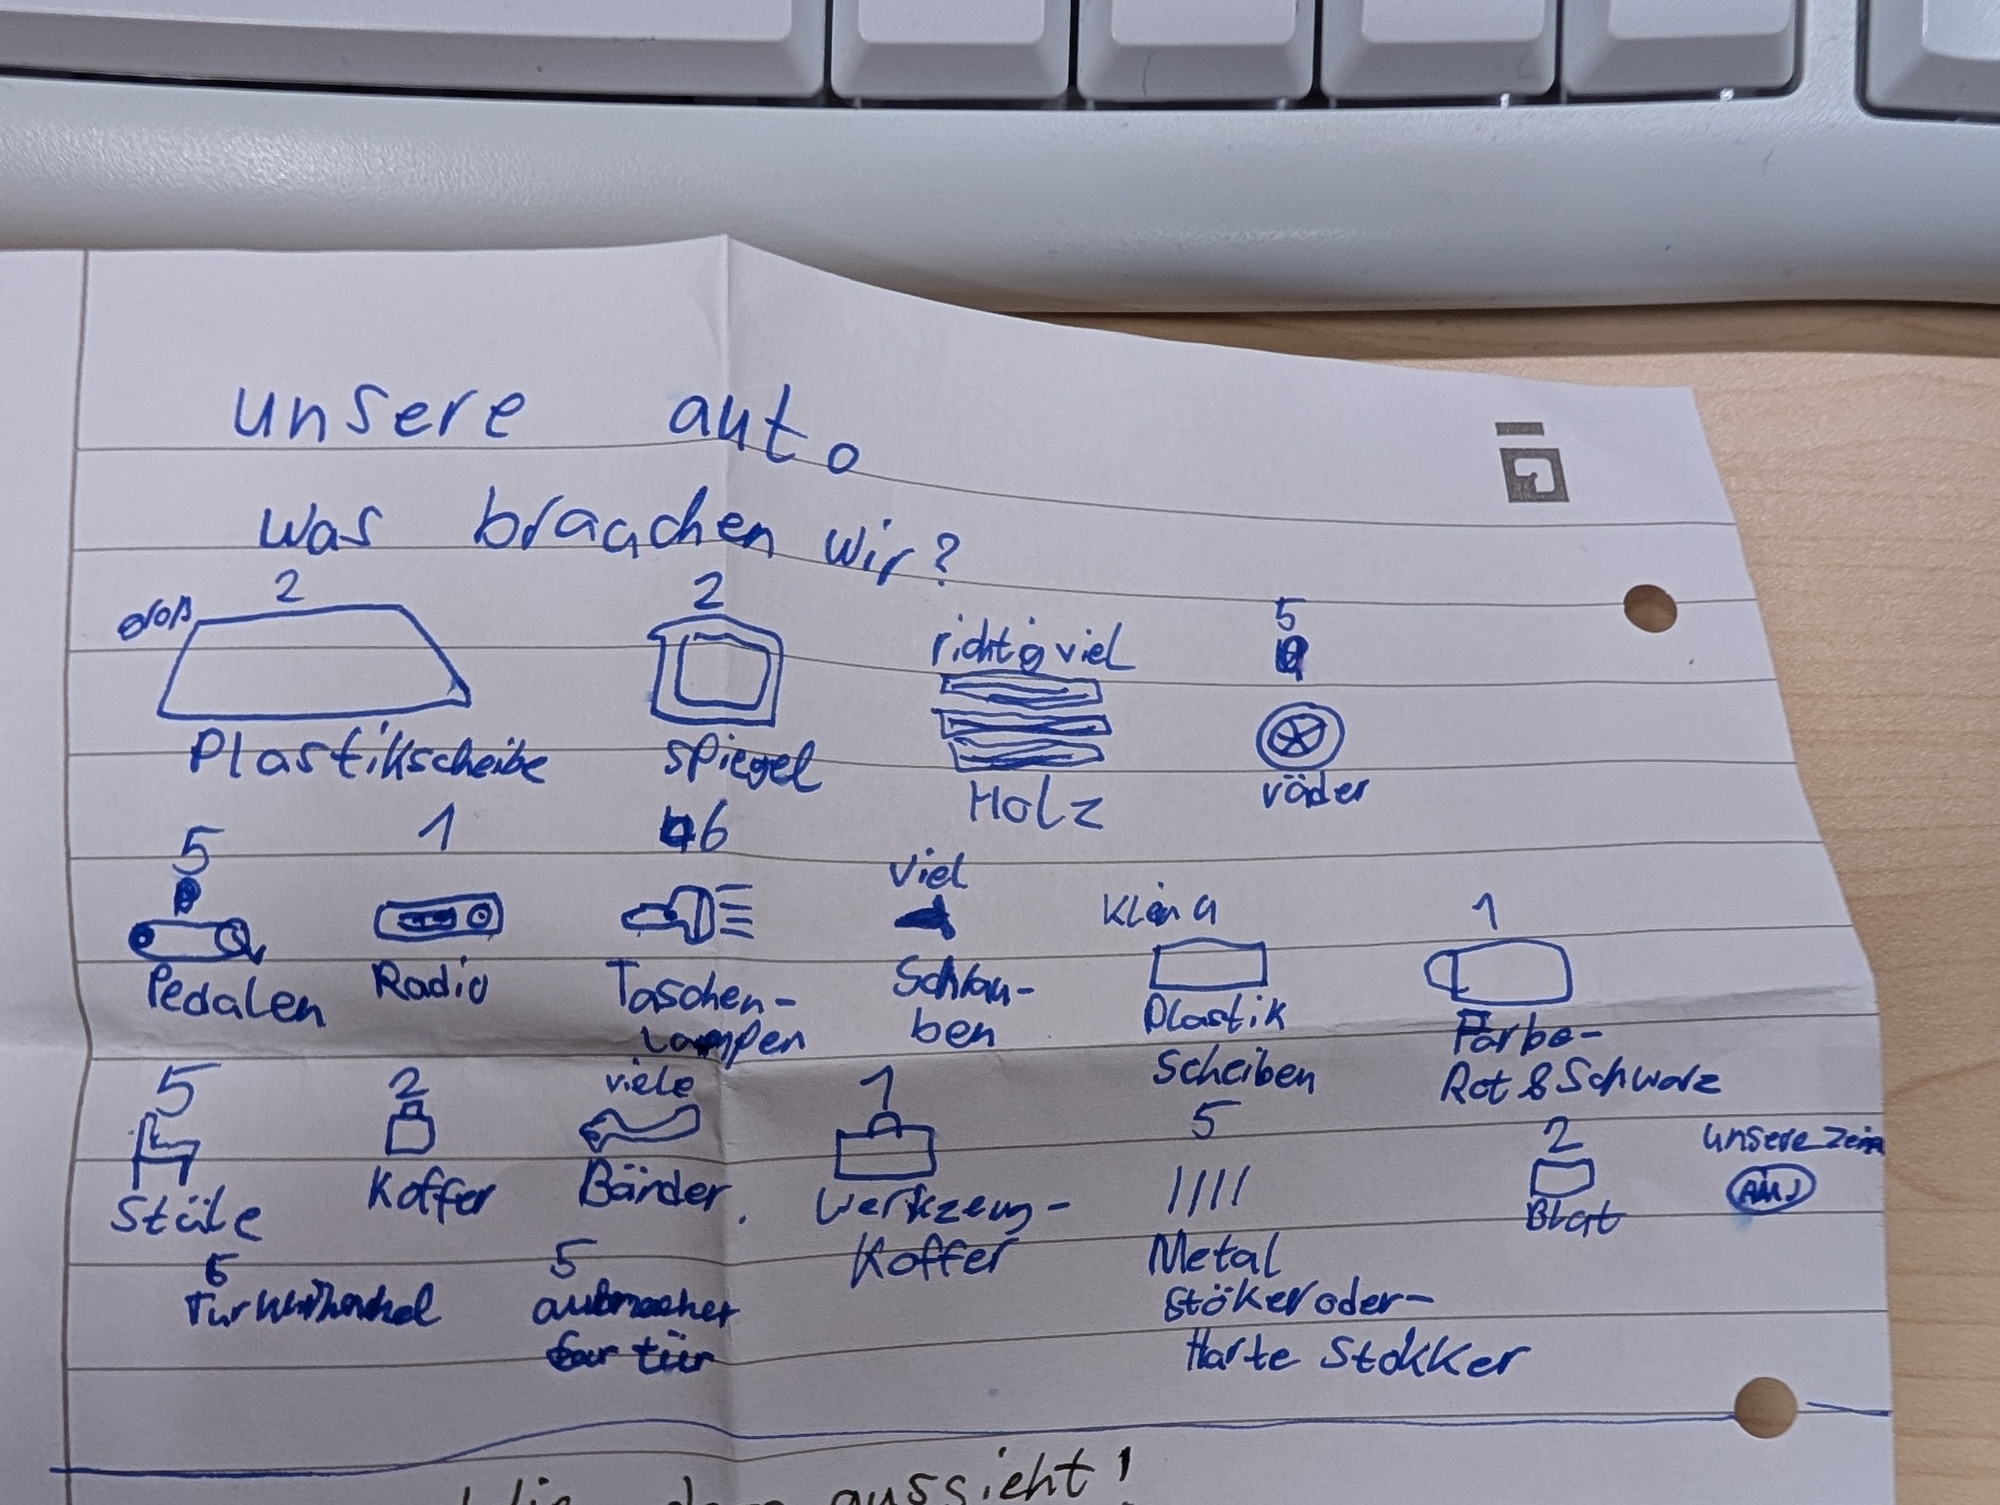 unsere auto
was brauchen wir?
2 2 5
groß richtig viel
Plastikscheibe spiegel Holz räder
5 1 6 viel klein 4 1
Pedalen Radio Taschen- Schrau- Plastik Farbe-
lampen ben Scheiben Rot & Schwarz
5 2 viele 1 5 2 unsere
AMJ
Stüle Koffer Bänder Werkzeug- Blat
Koffer Metal
5 5 stöker oder-
aufmacher Harte Stökker
für tür
aussieht!